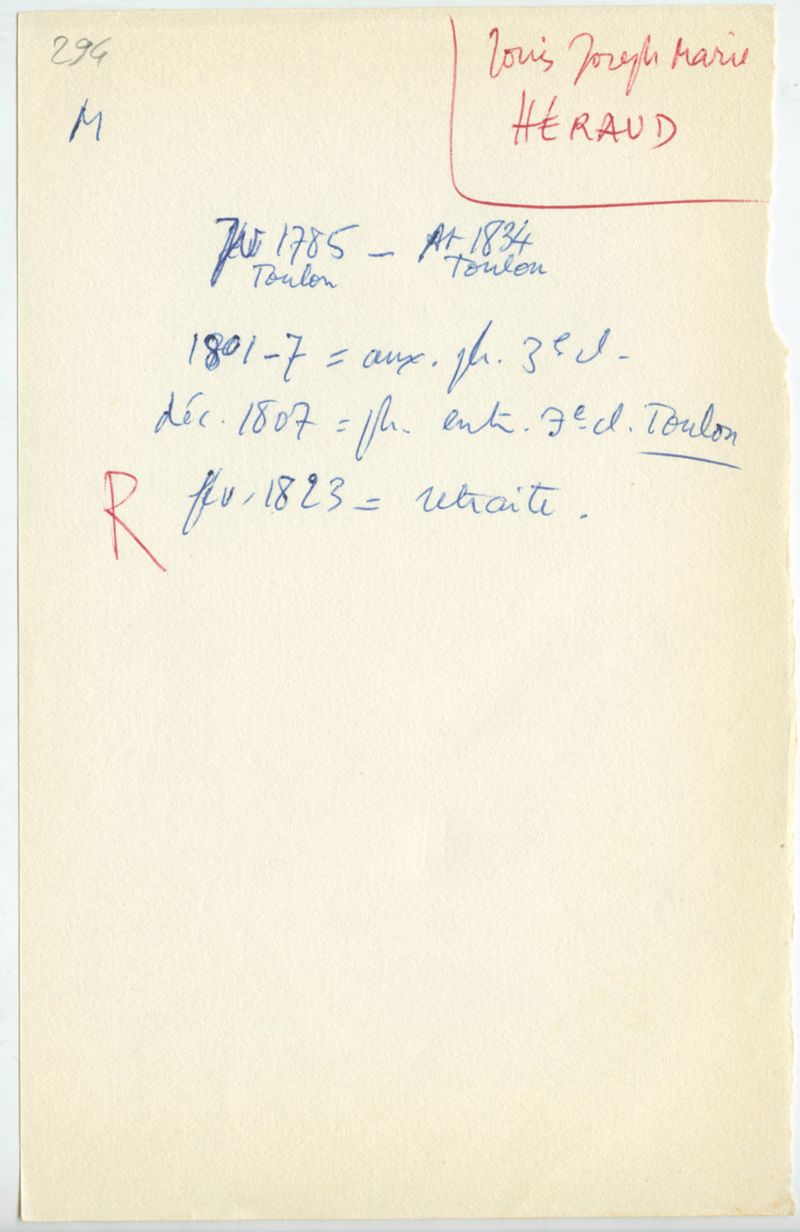 294
Louis Joseph Marie
HÉRAUD
M
1785 - At 1834
Toulon Toulon
1801-7 = aux. ph. 3e cl -
déc. 1807 = ph. entr. 3e cl. Toulon
R fév. 1823 = retraite.